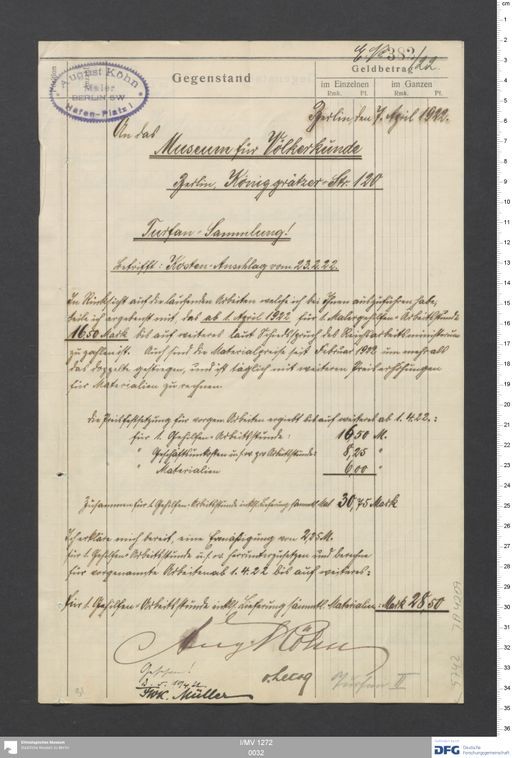 E. № 383/22.
August Köhn
Maler
BERLIN SW
Hafen-Platz 1
Gegenstand
Geldbetrag
im Einzelnen
im Ganzen
Rmk. Pf. Rmk. Pf.
Berlin, den 7. April 1922.
An das
Museum für Völkerkunde
Berlin, Königgrätzer-Str. 120
Turfan-Sammlung!
Betrifft: Kosten-Anschlag vom 23.2.22.
In Rücksicht auf die laufenden Arbeiten welche ich bei Ihnen auszuführen habe,
teile ich ergebenst mit, das ab 1. April 1922 für 1 Malergehilfen-Arbeitsstunde
16.50 Mark bis auf weiteres laut Schiedsspruch des Reichsarbeitsministerium
zu zahlen ist. Auch sind die Materialpreise seit Februar 1922 um mehr als
das doppelte gestiegen, und ist täglich mit weiteren Preiserhöhungen
für Materialien zu rechnen.
die Preisfestsetzung für vorgen. Arbeiten ergiebt bis auf weiteres ab 1.4.22.:
für 1 Gehilfen-Arbeitsstunde: 16.50 M.
" Geschäftsunkosten u.s.w. pro Arbeitsstunde: 8,25 "
" Materialien 6,00 "
Zusammen für 1 Gehilfen-Arbeitsstunde inkl. Lieferung sämmtl. Mat. 30,75 Mark
Ich erkläre mich bereit, eine Ermäßigung von 2,25 M.
für 1 Gehilfen-Arbeitsstunde u.s.w. herunterzusetzen und berechne
für vorgenannte Arbeiten ab 1.4.22 bis auf weiteres:
für 1 Gehilfen-Arbeitsstunde inkl. Lieferung sämmtl. Materialien: Mark 28,50
Aug. Köhn
Gesehen!
F.W.K. Müller
v. Lecoq
Turfan II
I/MV 1272
0032
Ethnologisches Museum
Staatliche Museen zu Berlin
DFG
Deutsche
Forschungsgemeinschaft